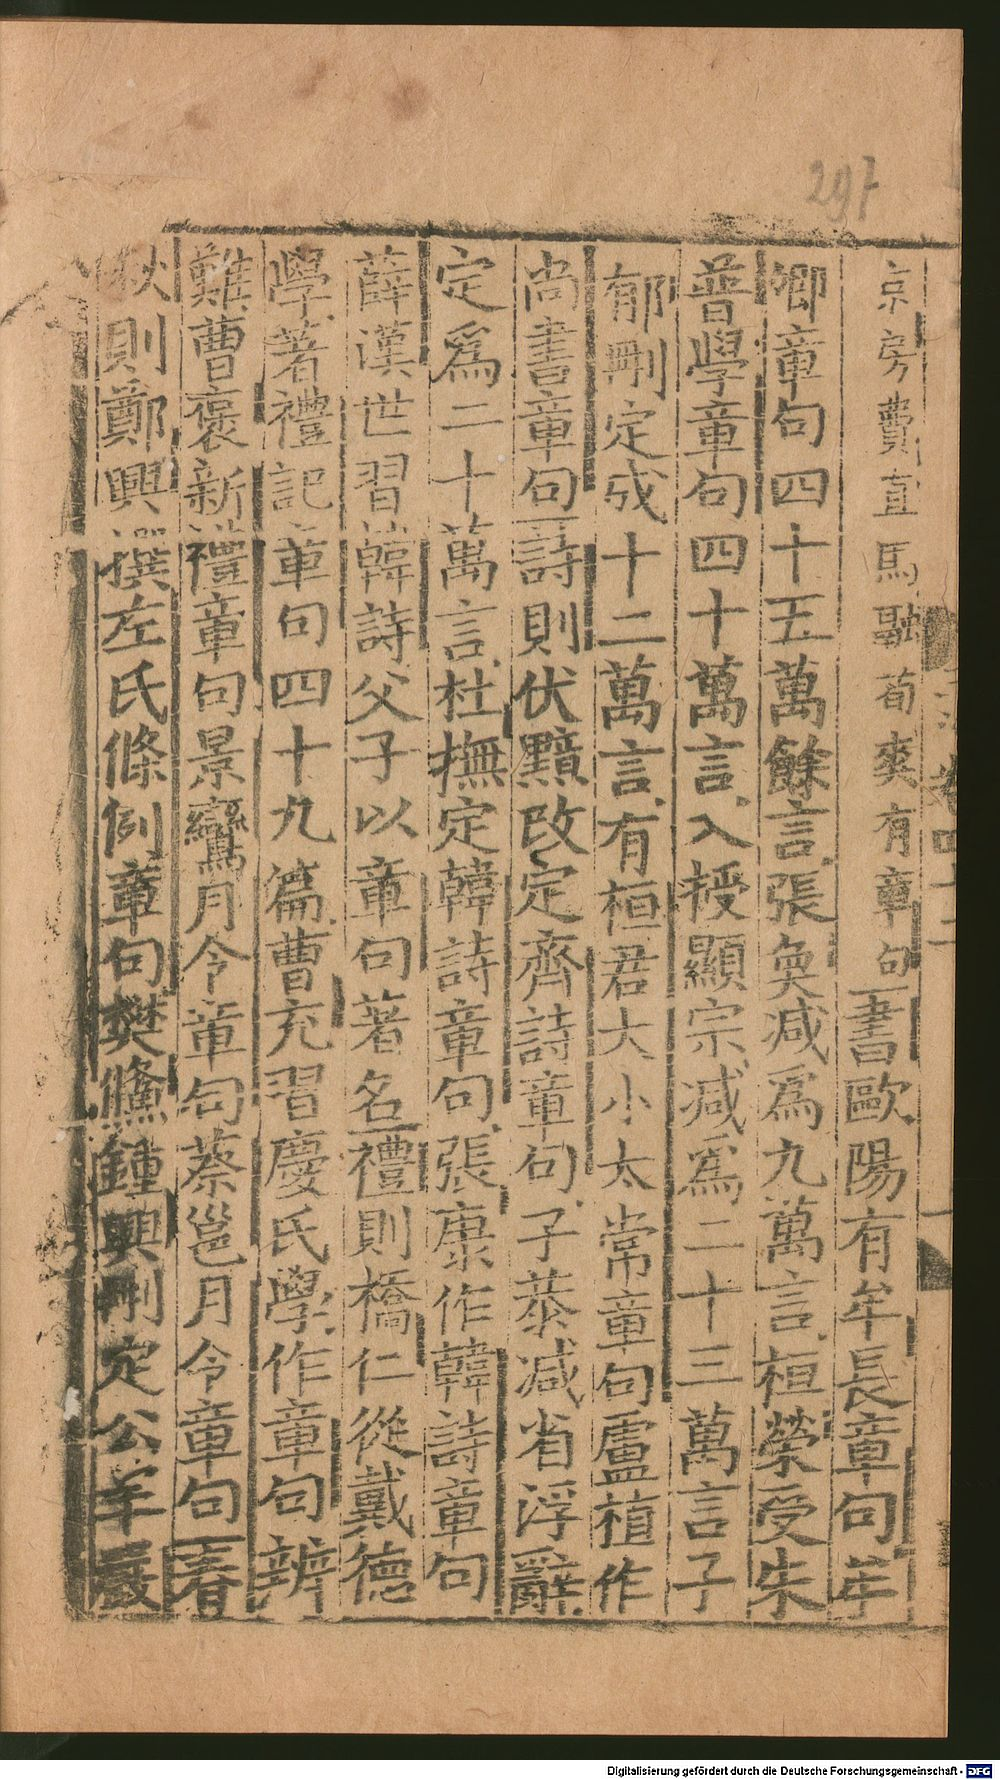 297
京房費直馬融荀爽有章句書歐陽有牟長章句牟
卿章句四十五萬餘言張奐减爲九萬言桓榮受朱
普學章句四十萬言入授顯宗减爲二十三萬言子
郁刪定成十二萬言有桓君大小太常章句盧植作
尚書章句詩則伏黯改定齊詩章句子恭减省浮辭
定爲二十萬言杜撫定韓詩章句張康作韓詩章句
薛漢世習韓詩父子以章句著名禮則橋仁從戴德
學著禮記章句四十九篇曹充習慶氏學作章句辨
難曹褒新禮章句景鸞月令章句蔡邕月令章句春
秋則鄭興撰左氏條例章句樊鯈鍾興刪定公羊嚴
Digitalisierung gefördert durch die Deutsche Forschungsgemeinschaft - DFG